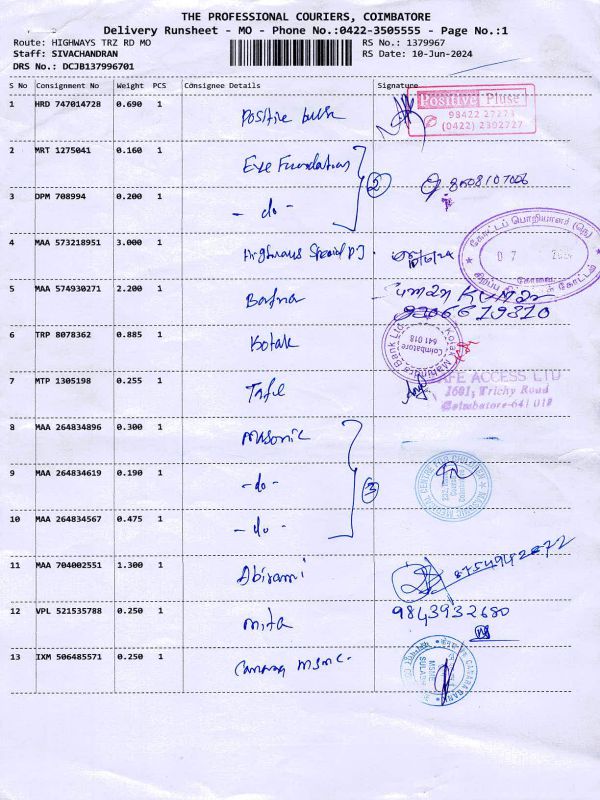 THE PROFESSIONAL COURIERS, COIMBATORE
Delivery Runsheet - MO - Phone No.:0422-3505555 - Page No.:1
Route: HIGHWAYS TRZ RD MO
RS No.: 1379967
Staff: SIVACHANDRAN
RS Date: 10-Jun-2024
DRS No.: DCJB137996701
S No Consignment No Weight PCS Consignee Details Signature
1 HRD 747014728 0.690 1 Positive
Positive Pluse
98422 27273
(0422) 2302727
2 MRT 1275041 0.160 1 Eye Foundation
3 DPM 708994 0.200 1 - do -
2
8608107006
4 MAA 573218951 3.000 1 Highways Special
10/6/24
கோட்டப் பொறியாளர் (நெ)
07
கோவை
5 MAA 574930271 2.200 1 Bafna
Suman Kumar
9206619310
6 TRP 8078362 0.885 1 Kotak
Kotak Mahindra Bank Ltd
Coimbatore
641 018
7 MTP 1305198 0.255 1 Tafe
TAFE ACCESS LTD
1601, Trichy Road
Coimbatore-641 018
8 MAA 264834896 0.300 1 Masonic
9 MAA 264834619 0.190 1 - do -
3
MASONIC MEDICAL CENTRE FOR CHILDREN
10 MAA 264834567 0.475 1 - do -
11 MAA 704002551 1.300 1 Abirami
8754942872
12 VPL 521535788 0.250 1 Mita
9843932680
13 IXM 506485571 0.250 1 Canara MSME
CANARA BANK